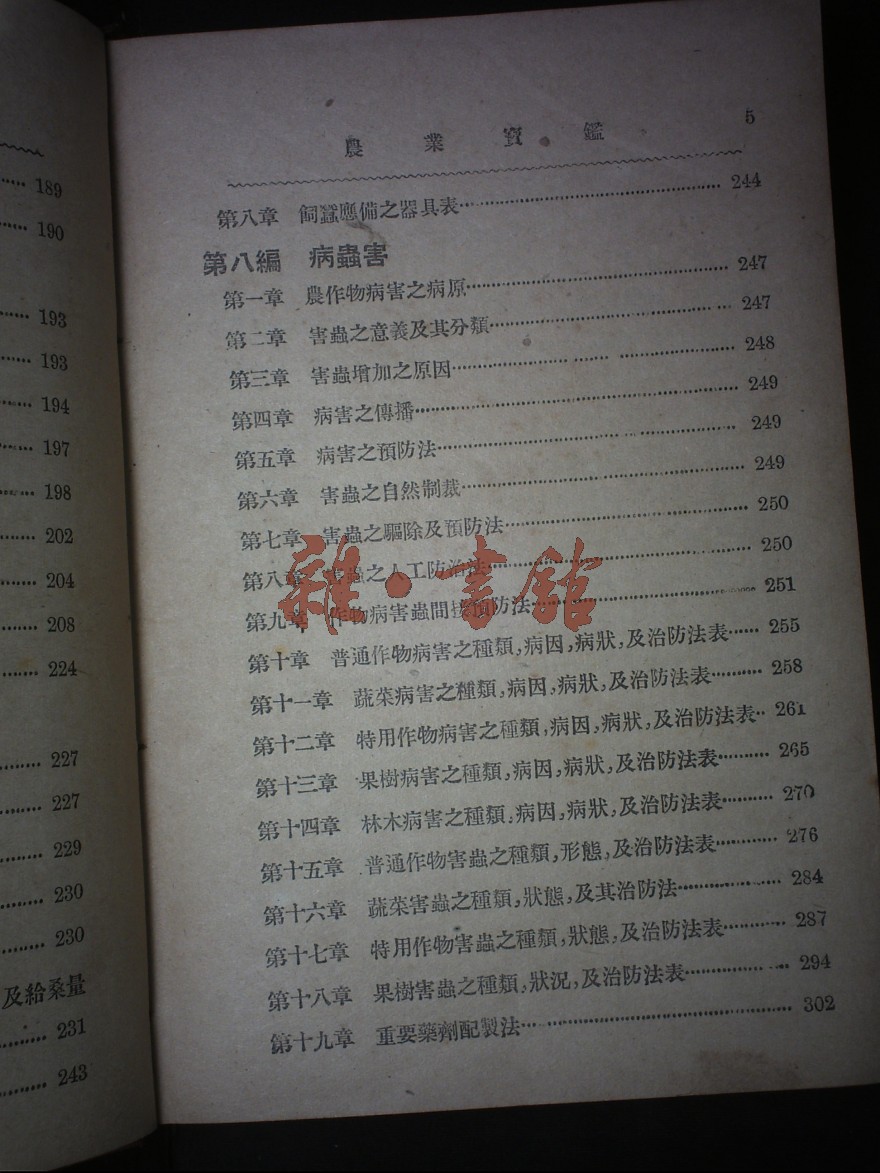 189
190
193
193
194
197
198
202
204
208
224
227
227
229
230
230
及給桑量
231
243
農業寶鑑 5
第八章 飼蠶應備之器具表 244
第八編 病蟲害
第一章 農作物病害之病原 247
第二章 害蟲之意義及其分類 247
第三章 害蟲增加之原因 248
第四章 病害之傳播 249
第五章 病害之預防法 249
第六章 害蟲之自然制裁 249
第七章 害蟲之驅除及預防法 250
第八章 害蟲之人工防治法 250
第九章 作物病害蟲間接預防法 251
第十章 普通作物病害之種類,病因,病狀,及治防法表 255
第十一章 蔬菜病害之種類,病因,病狀,及治防法表 258
第十二章 特用作物病害之種類,病因,病狀,及治防法表 261
第十三章 果樹病害之種類,病因,病狀,及治防法表 265
第十四章 林木病害之種類,病因,病狀,及治防法表 270
第十五章 普通作物害蟲之種類,形態,及治防法表 276
第十六章 蔬菜害蟲之種類,狀態,及其治防法 284
第十七章 特用作物害蟲之種類,狀態,及治防法表 287
第十八章 果樹害蟲之種類,狀況,及治防法表 294
第十九章 重要藥劑配製法 302
雜·書館